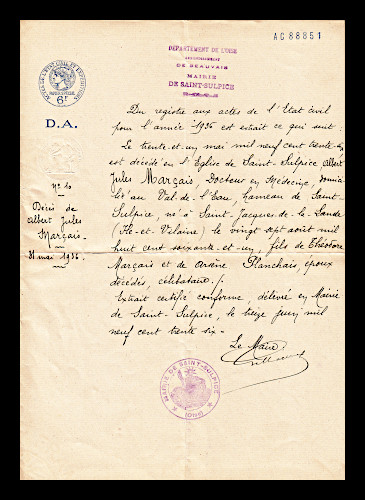 AC 88851
DÉPARTEMENT DE L'OISE
ARRONDISSEMENT
DE BEAUVAIS
MAIRIE
DE SAINT-SULPICE
6F
D.A.
Nº 10
Décès de
Albert Jules
Marçais.
31 mai 1936
Du registre aux actes de l'Etat civil
pour l'année 1936 est extrait ce qui suit :
Le trente-et-un mai mil neuf cent trente-six
est décédé en l'Eglise de Saint-Sulpice Albert
Jules Marçais. Docteur en Médecine, domici-
lié au Val-de-l'Eau, hameau de Saint-
Sulpice, né à Saint-Jacques-de-la-Lande
(Ille-et-Vilaine) le vingt sept août mil
huit cent soixante-et-un, fils de Théodore
Marçais et de Arsène Planchais époux
décédés, célibataire./.
Extrait certifié conforme, délivré en Mairie
de Saint-Sulpice, le treize juin mil
neuf cent trente six.
Le Maire
MAIRIE DE SAINT-SULPICE
(Oise)